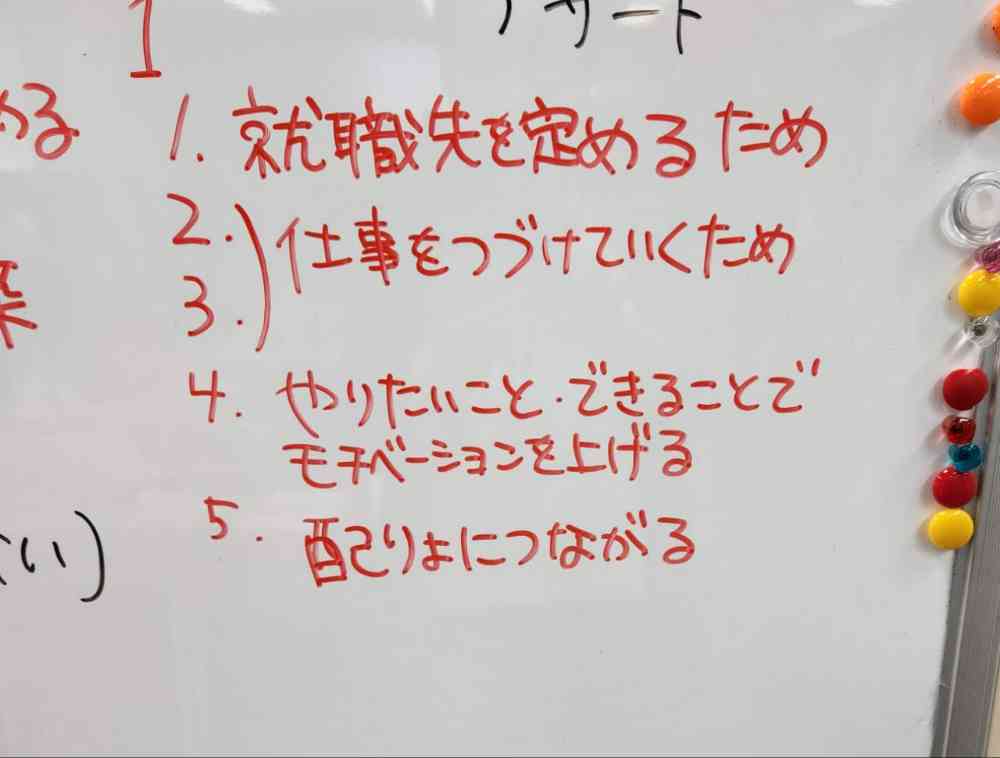 1. 就職先を定めるため
2.
3. ) 仕事をつづけていくため
4. やりたいこと・できることで
モチベーションを上げる
5. 配りょにつながる